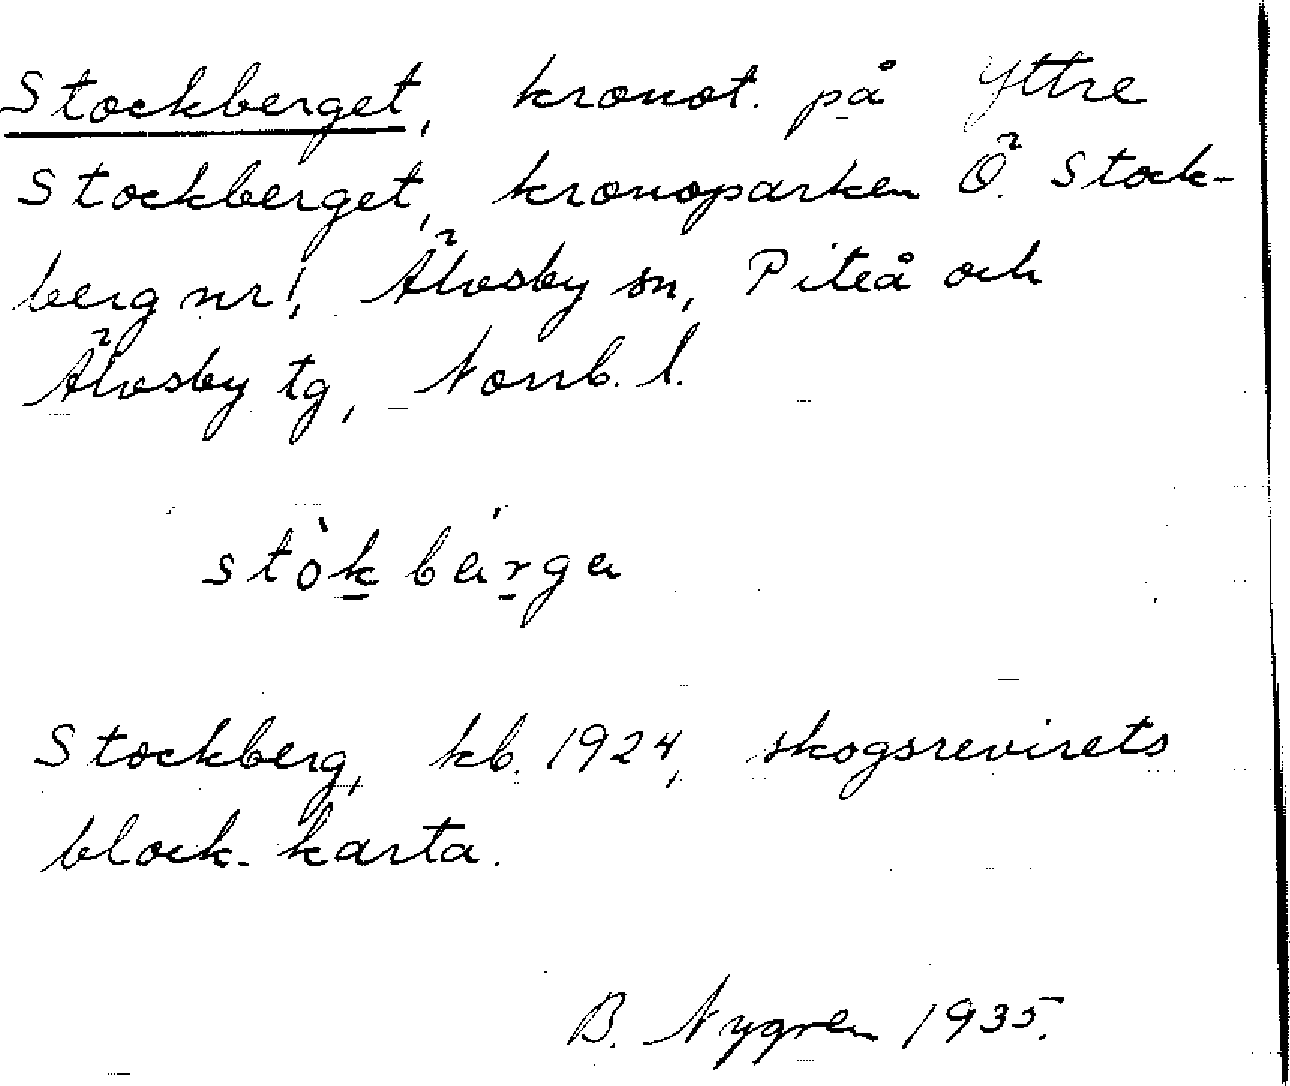 Stockberget, kronot. på Yttre
Stockberget, kronoparken Ö. Stock-
berg nr 1, Älvsby sn, Piteå och
Älvsby tg, Norrb. l.
stòkbárga
Stockberg, kb. 1924, skogsrevirets
block-karta.
B. Nygren 1935.